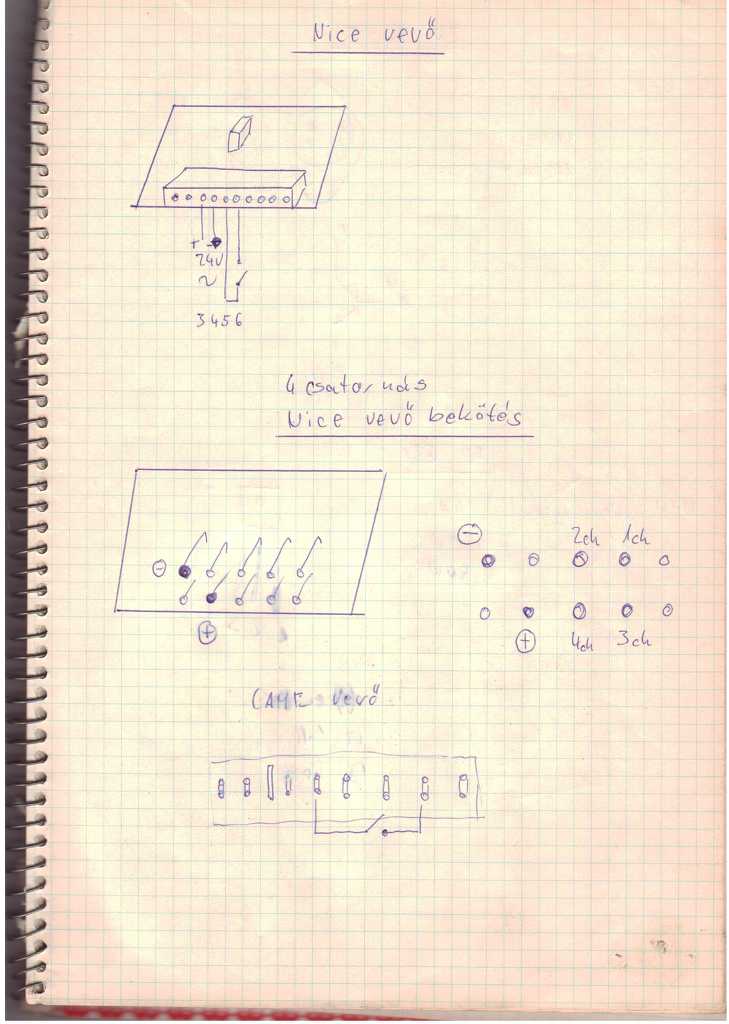 Nice vevő
+ -
24V
~
3 4 5 6
4 csatornás
Nice vevő bekötés
- 2ch 1ch
-
+
+ 4ch 3ch
CAME vevő